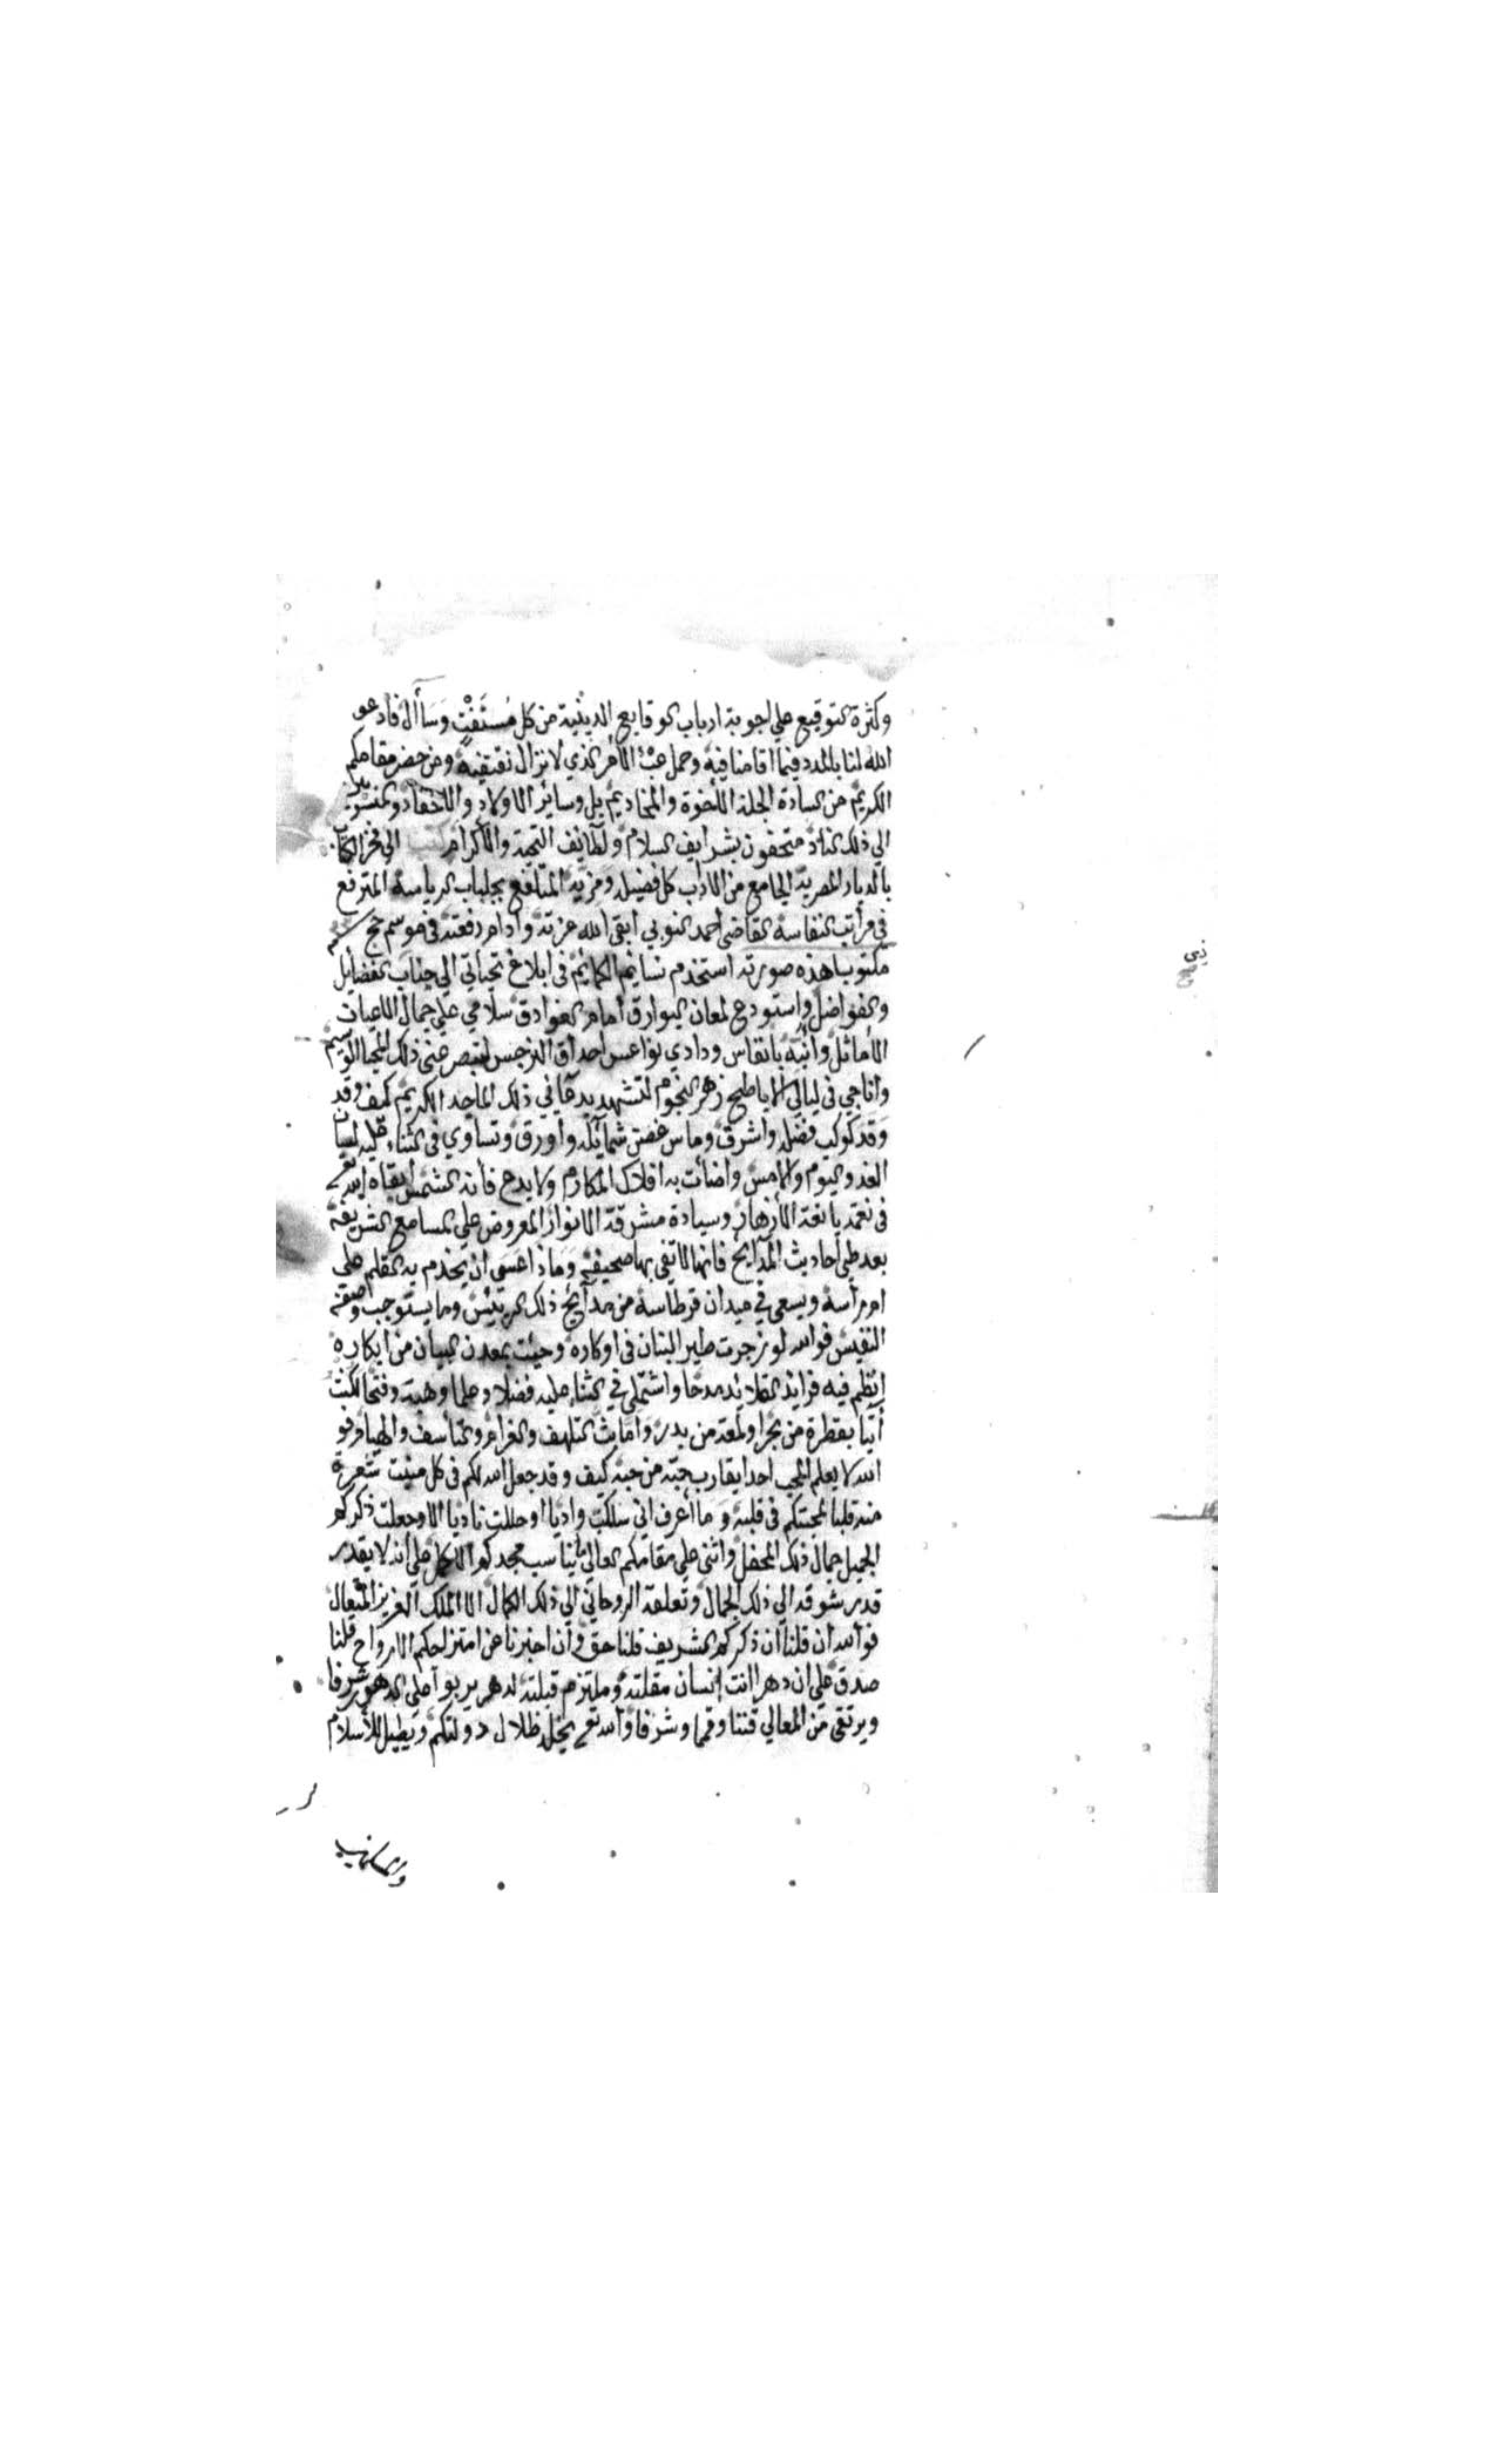 وكثرة التوقيع علي اجوبة ارباب الوقايع الدينية من كل مُستَفْتٍ وَسَأال فادعو
الله لنا بالمدد فيما اقامنا فيه وحمل عبْئ الامر الذي لا نزال نقتفيه ومن حضر مقامكم
الكريم من السادة الجلة الاخوة والمخاديم بل وساير الاولاد والاحفاد والمنسوبين
الي ذلك الناد متحفون بشرايف السلام ولطايف التحية والاكرام كتب الي فخر الكتاب
بالديار المصرية الجامع من الاداب كل فضيلة ومزية المتلفع بجلباب الرياسة المترفع
في مراتب النفاسة القاضي احمد النوبي ابقي الله عزته وادام رفعته في موسم حج
مكتوبا هذه صورته استخدم نسايم الكمايم في ابلاغ تحياتي الي جناب الفضايل
والفواضل واستودع لمعان البوارق امام الغوادق سلامي علي جمال الاعيان
الأماثل وأنبّه بانفاس ودادي نواعس احداق النرجس لتبصر عني ذلك المحيا الوسيم
واناجي في ليالي الاباطح زهر النجوم لتشهد بدعائي ذلك الماجد الكريم كيف وقد
وقد كوكب فضله واشرق وماس غصن شمائله واورق وتساوي في الثناء عليه لسان
الغد واليوم والامس واضأت به افلاك المكارم ولا بدع فانه الشمس ابقاه الله تع
في نعمة يانعة الأزهار وسيادة مشرقة الانوار المعروض علي المسامع الشريفة
بعد طي احاديث المدآيح فانها لا تفي بها صحيفة وماذا عسي ان يخدم به القلم علي
ام رأسه ويسعي في ميدان قرطاسه من مدآيح ذلك الرئيس وما يستوجب وصفه
النفيس فوالله لو زجرت طير البنان في اوكاره وجئت بمعدن البيان من ابكاره
انظم فيه فرايد القلايد مدحا واشتملي في الثناء عليه فضلا وعلما وهبة وفتحا لكنت
آتيا بقطرة من بحر او لمعة من بدر واما بث التلهف والغرام والتأسف والهيام فو
الله لا يعلم المحب احدا يقارب حبّه من حبه كيف وقد جعل الله لكم في كل منبت شعرة
منه قلبا لمحبتكم في قلبه وما اعرف اني سلكت واديا او حللت ناديا الا وجعلت ذكركم
الجميل جمال ذلك المحفل واثني علي مقامكم العالي بما يناسب مجدكم الاكمل علي انه لا يقدر
قدر شوقه الي ذلك الجمال وتعلقه الروحاني الي ذلك الكمال الا الملك العزيز المتعال
فوالله ان قلنا ان ذكركم الشريف قلنا حق وان اخبرنا عن امتزاجكم الارواح قلنا
صدق علي ان دهرا انت إنسان مقلته وملتزم قبلته لدهر يربو علي الدهور شرفا
ويرتقي من المعالي قننا وقمما وشرفا والله تع يخلد ظلال دولتكم ويطيل للأسلام
والمسلمين